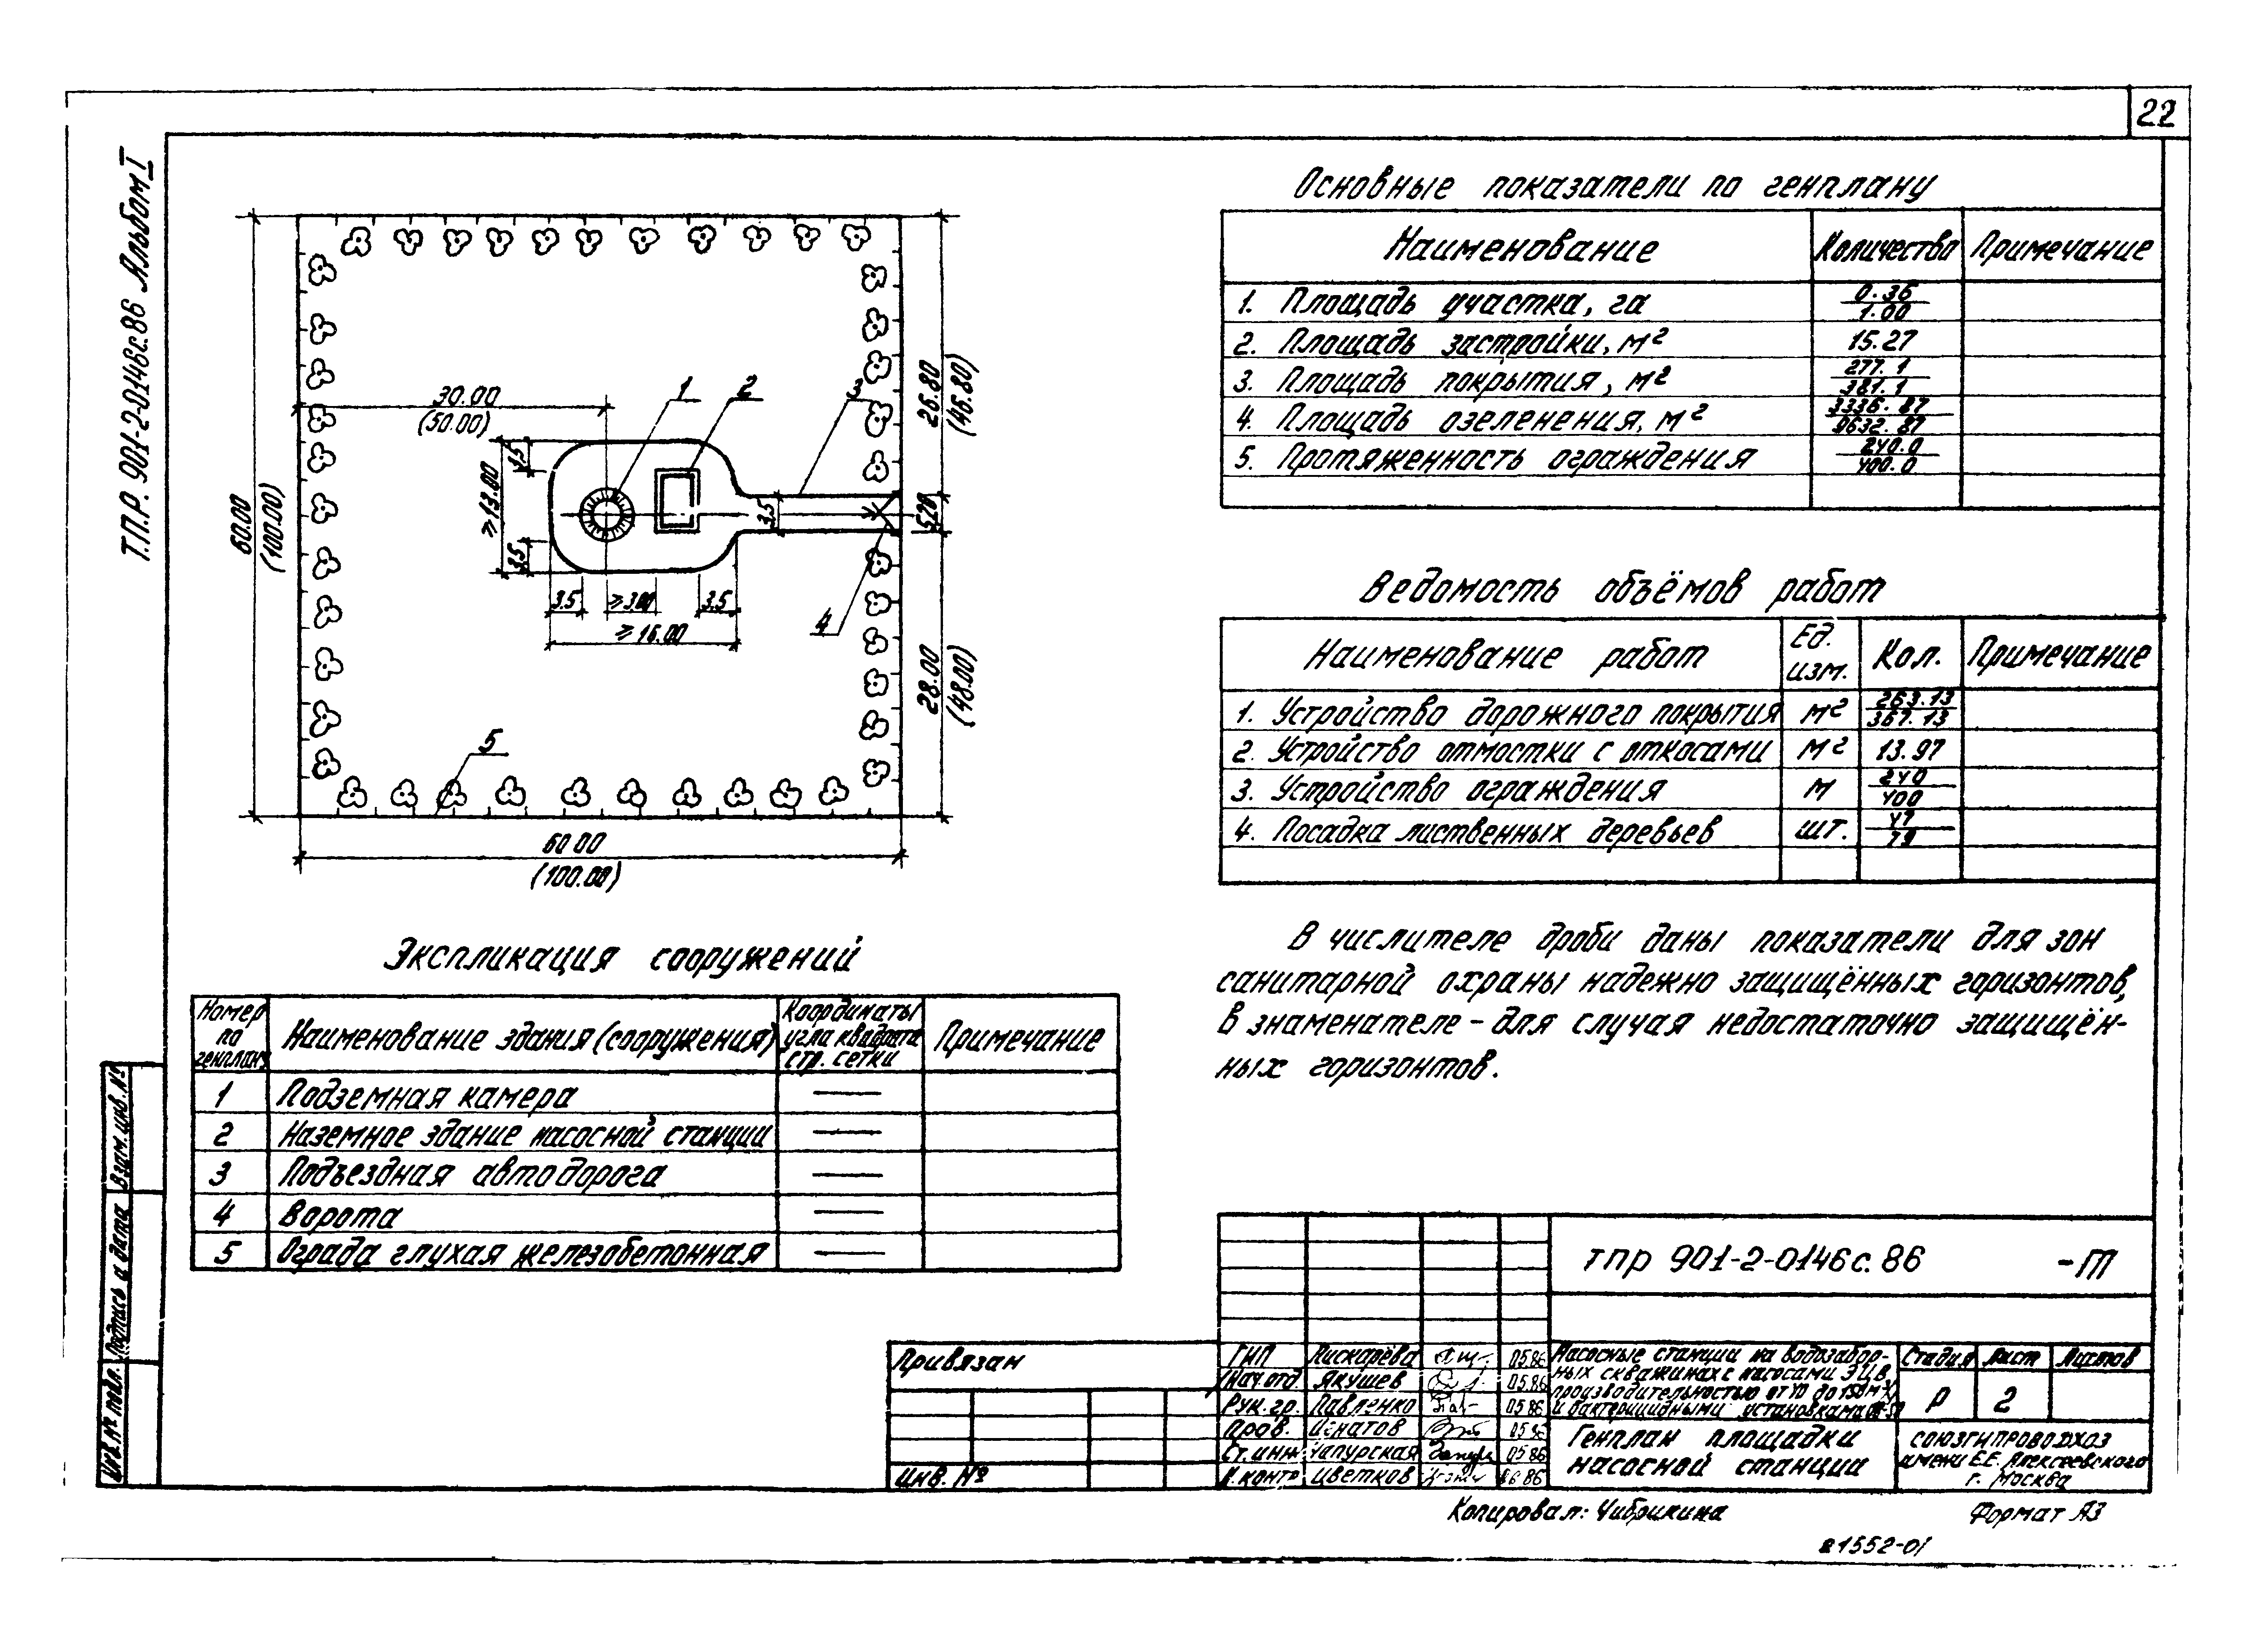 22
Т.П.Р. 901-2-0146с.86 Альбом I
60.00
(100.00)
30.00
(50.00)
1
2
3
26.80
(46.80)
3.5
≥13.00
3.5
3.5
5.20
3.5
≥3.00
3.5
≥16.00
4
28.00
(48.00)
5
60.00
(100.00)
Основные показатели по генплану
Наименование Количество Примечание
1. Площадь участка, га 0.36
1.00
2. Площадь застройки, м² 15.27
3. Площадь покрытия, м² 277.1
381.1
4. Площадь озеленения, м² 3336.87
9632.87
5. Протяженность ограждения 240.0
400.0
Ведомость объёмов работ
Наименование работ Ед. изм. Кол. Примечание
1. Устройство дорожного покрытия м² 263.13
367.13
2. Устройство отмостки с откосами м² 13.97
3. Устройство ограждения м 240
400
4. Посадка лиственных деревьев шт. 47
79
В числителе дроби даны показатели для зон
санитарной охраны надежно защищённых горизонтов,
в знаменателе – для случая недостаточно защищён-
ных горизонтов.
Экспликация сооружений
Номер по генплану Наименование здания (сооружения) Координаты угла квадрата стр. сетки Примечание
1 Подземная камера —
2 Наземное здание насосной станции —
3 Подъездная автодорога —
4 Ворота —
5 Ограда глухая железобетонная —
Взам. инв. №
Подпись и дата
Инв. № подл.
Привязан
Инв. №
тпр 901-2-0146с.86 -ГП
ГИП Пискарёва 05.86
Нач. отд. Якушев 05.86
Рук. гр. Павленко 05.86
Пров. Игнатов 05.86
Ст. инж. 05.86
Н. контр. Цветков 06.86
Насосные станции на водозабор-
ных скважинах с насосами ЭЦВ,
производительностью от 10 до 150 м³/
и бактерицидными установками
Стадия Лист Листов
Р 2
Генплан площадки
насосной станции
СОЮЗГИПРОВОДХОЗ
имени Е.Е. Алексеевского
г. Москва
Копировал: Чибрикина
Формат А3
21552-01